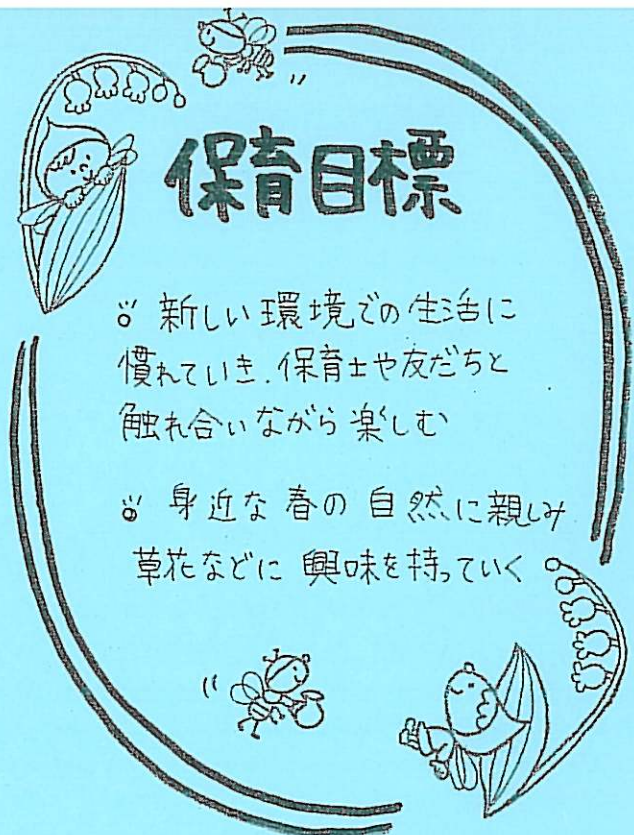 保育目標
新しい環境での生活に
慣れていき、保育士や友だちと
触れ合いながら楽しむ
身近な春の自然に親しみ
草花などに興味を持っていく